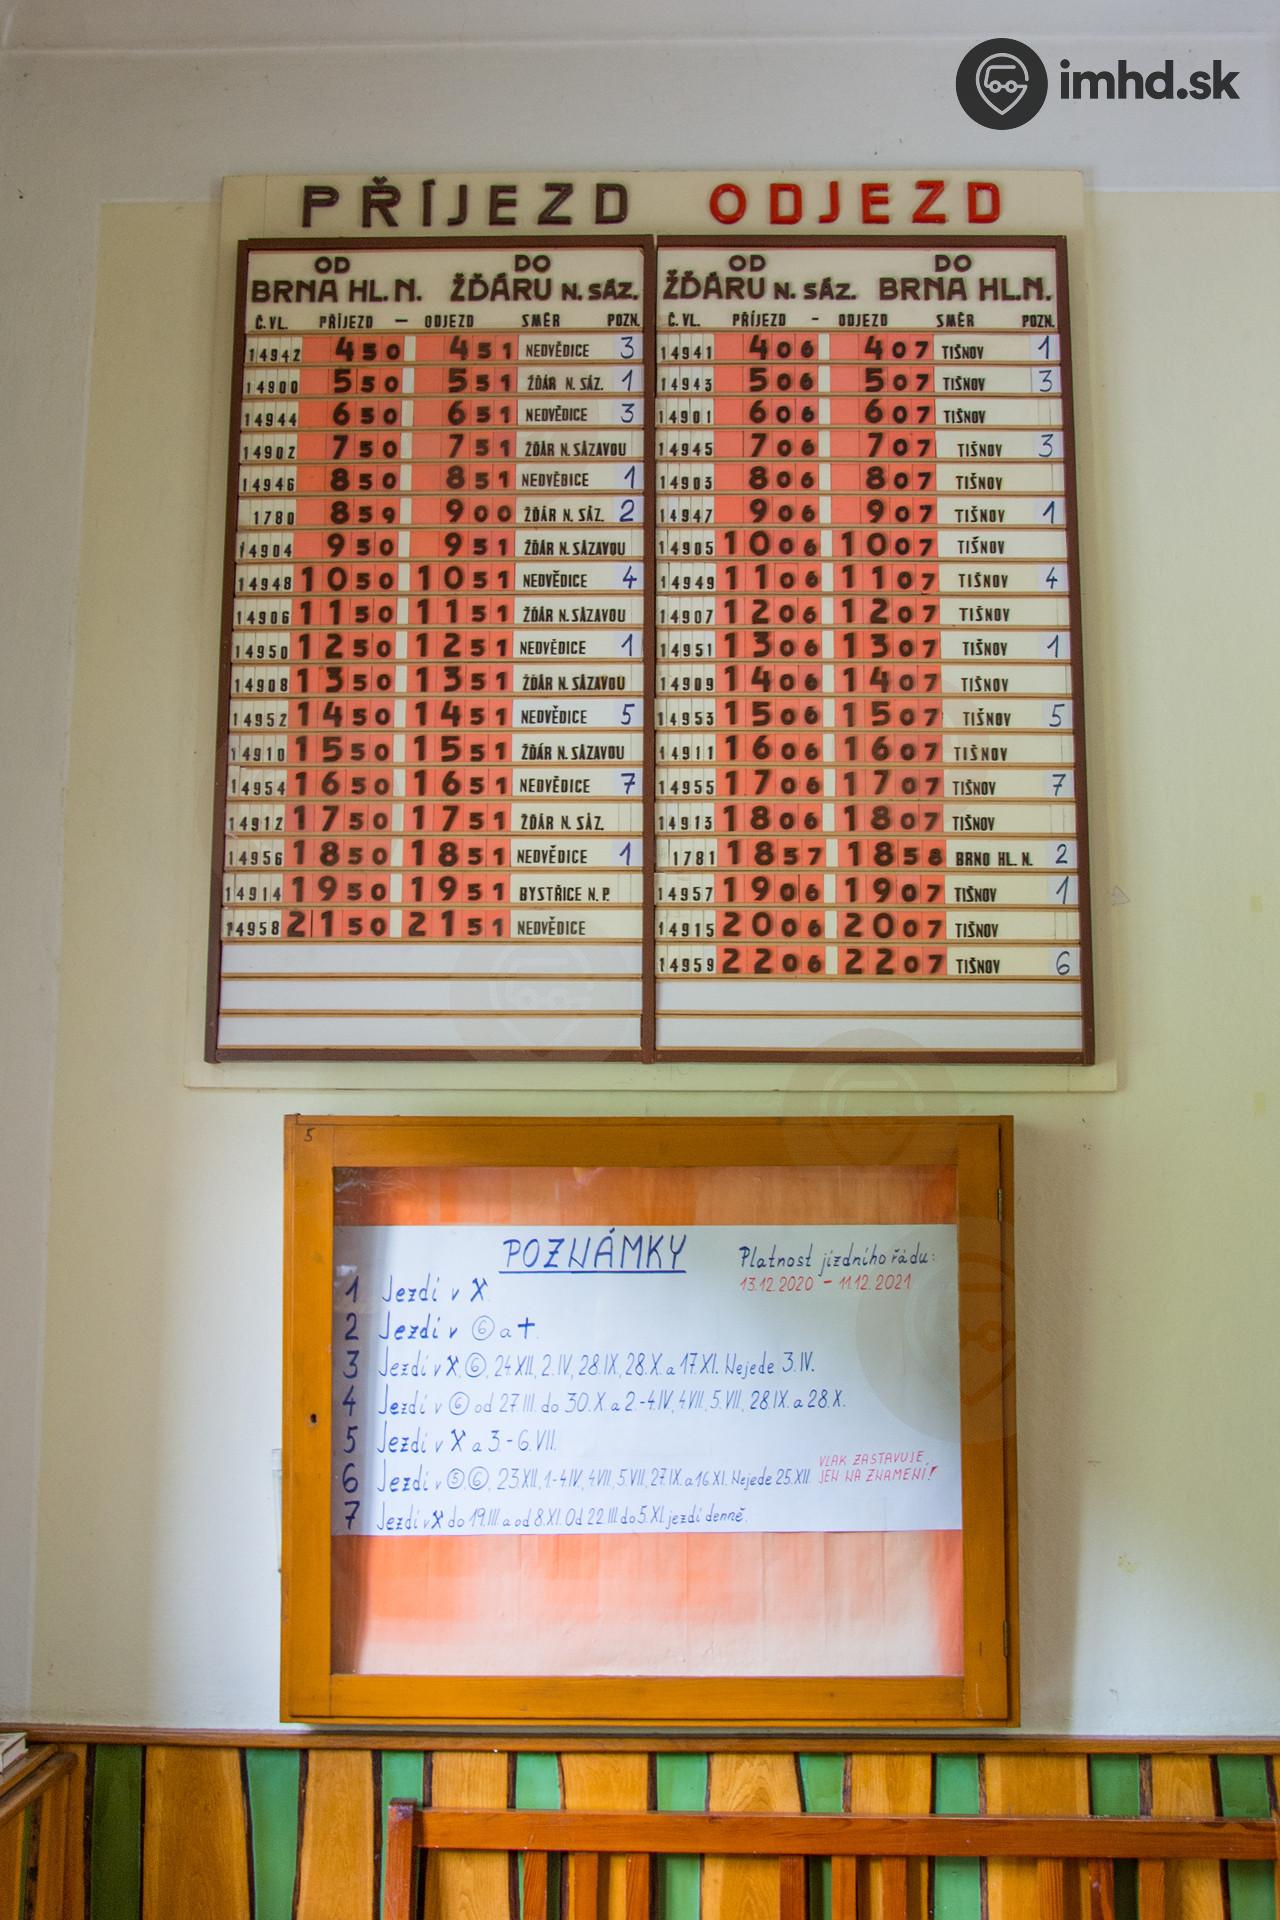 imhd.sk
PŘÍJEZD ODJEZD
OD DO
BRNA HL. N. ŽĎÁRU N. SÁZ.
Č. VL. PŘÍJEZD — ODJEZD SMĚR POZN.
14942 4 50 4 51 NEDVĚDICE 3
14900 5 50 5 51 ŽĎÁR N. SÁZ. 1
14944 6 50 6 51 NEDVĚDICE 3
14902 7 50 7 51 ŽĎÁR N. SÁZAVOU
14946 8 50 8 51 NEDVĚDICE 1
1780 8 59 9 00 ŽĎÁR N. SÁZ. 2
14904 9 50 9 51 ŽĎÁR N. SÁZAVOU
14948 10 50 10 51 NEDVĚDICE 4
14906 11 50 11 51 ŽĎÁR N. SÁZAVOU
14950 12 50 12 51 NEDVĚDICE 1
14908 13 50 13 51 ŽĎÁR N. SÁZAVOU
14952 14 50 14 51 NEDVĚDICE 5
14910 15 50 15 51 ŽĎÁR N. SÁZAVOU
14954 16 50 16 51 NEDVĚDICE 7
14912 17 50 17 51 ŽĎÁR N. SÁZ.
14956 18 50 18 51 NEDVĚDICE 1
14914 19 50 19 51 BYSTŘICE N. P.
14958 21 50 21 51 NEDVĚDICE
OD DO
ŽĎÁRU N. SÁZ. BRNA HL. N.
Č. VL. PŘÍJEZD - ODJEZD SMĚR POZN.
14941 4 06 4 07 TIŠNOV 1
14943 5 06 5 07 TIŠNOV 3
14901 6 06 6 07 TIŠNOV
14945 7 06 7 07 TIŠNOV 3
14903 8 06 8 07 TIŠNOV
14947 9 06 9 07 TIŠNOV 1
14905 10 06 10 07 TIŠNOV
14949 11 06 11 07 TIŠNOV 4
14907 12 06 12 07 TIŠNOV
14951 13 06 13 07 TIŠNOV 1
14909 14 06 14 07 TIŠNOV
14953 15 06 15 07 TIŠNOV 5
14911 16 06 16 07 TIŠNOV
14955 17 06 17 07 TIŠNOV 7
14913 18 06 18 07 TIŠNOV
1781 18 57 18 58 BRNO HL. N. 2
14957 19 06 19 07 TIŠNOV 1
14915 20 06 20 07 TIŠNOV
14959 22 06 22 07 TIŠNOV 6
5
POZNÁMKY
Platnost jízdního řádu:
13.12.2020 - 11.12.2021
1 Jezdí v ⚒
2 Jezdí v ⑥ a ✝.
3 Jezdí v ⚒, ⑥, 24.XII., 2.IV., 28.IX., 28.X. a 17.XI. Nejede 3.IV.
4 Jezdí v ⑥ od 27.III. do 30.X. a 2.-4.IV., 4.VII., 5.VII., 28.IX. a 28.X.
5 Jezdí v ⚒ a 3.-6.VII.
6 Jezdí v ⑤ ⑥, 23.XII., 1.-4.IV., 4.VII., 5.VII., 27.IX. a 16.XI. Nejede 25.XII.
VLAK ZASTAVUJE
JEN NA ZNAMENÍ!
7 Jezdí v ⚒ do 19.III. a od 8.XI. Od 22.III. do 5.XI. jezdí denně.